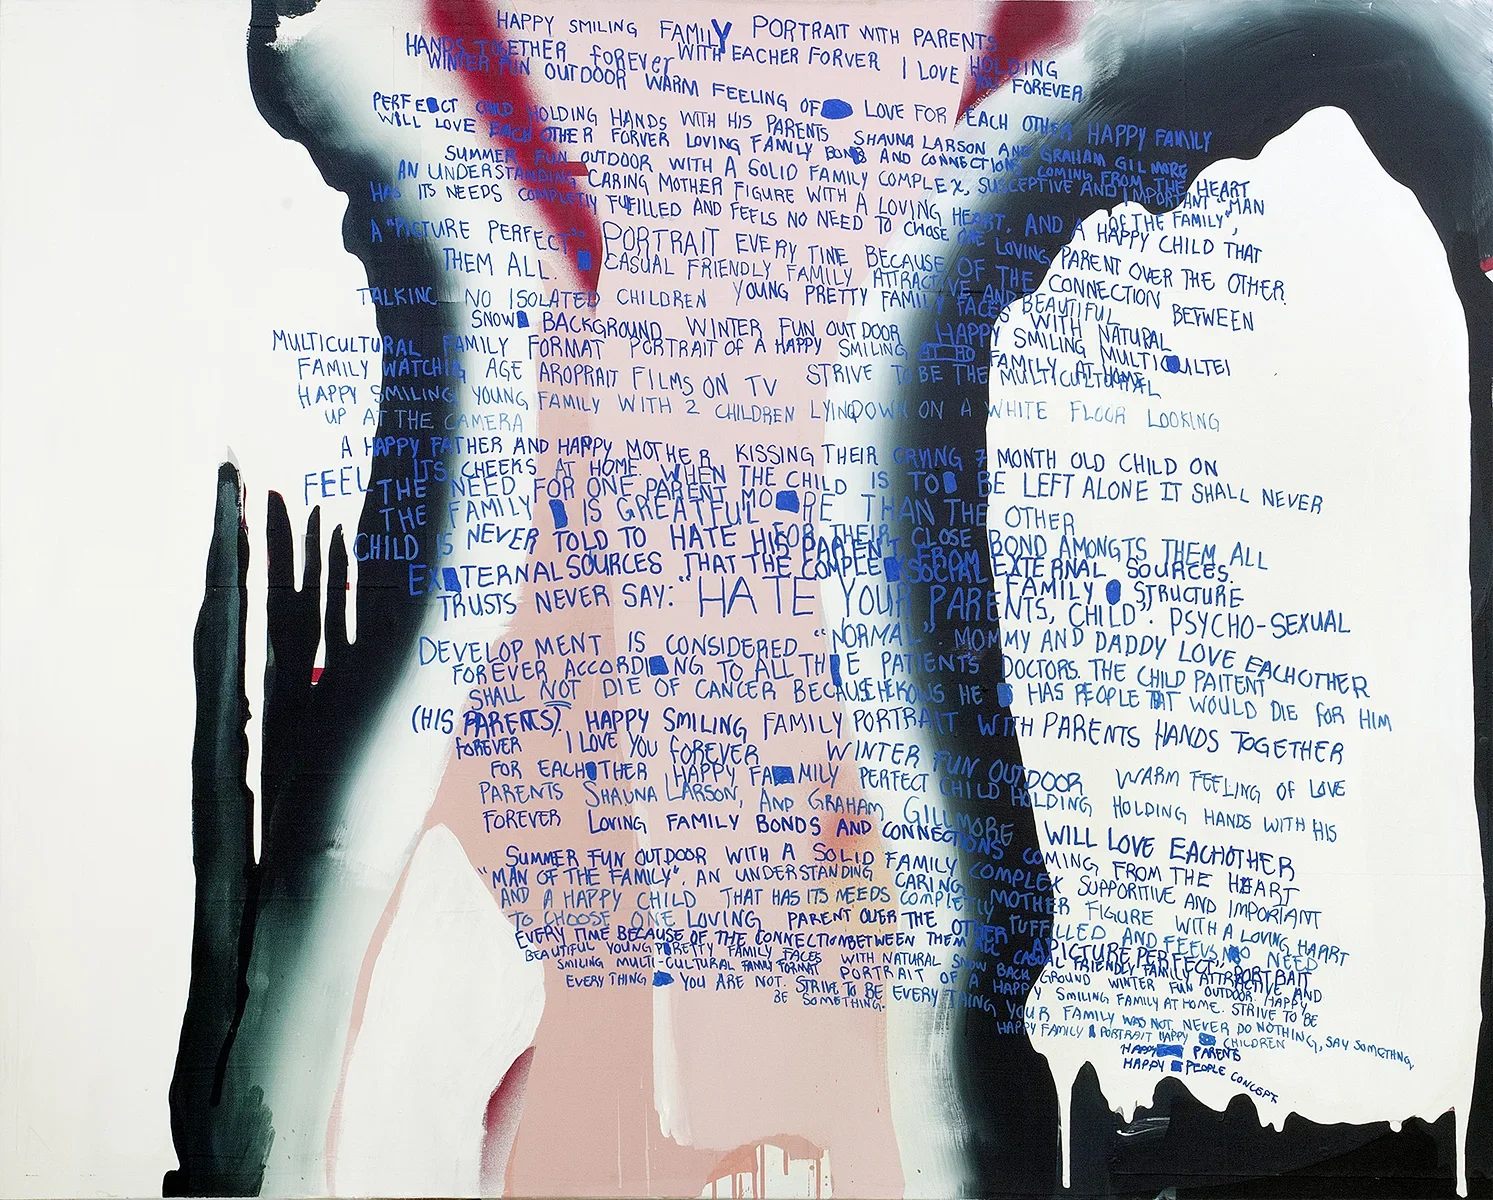 HAPPY SMILING FAMILY PORTRAIT WITH PARENTS
HANDS TOGETHER FOREVER WITH EACHER FORVER I LOVE HOLDING
WINTER FUN OUTDOOR WARM FEELING OF LOVE FOR YOU FOREVER
PERFECT CHILD HOLDING HANDS WITH HIS PARENTS EACH OTHER HAPPY FAMILY
WILL LOVE EACH OTHER FORVER LOVING FAMILY BOND AND CONNECTIONS SHAUNA LARSON AND GRAHAM GILLMORE
SUMMER FUN OUTDOOR WITH A SOLID FAMILY COMPLEX, COMING FROM THE HEART
AN UNDERSTANDING CARING MOTHER FIGURE WITH A LOVING HEART, SUSCEPTIVE AND IMPORTANT "MAN OF THE FAMILY",
HAS ITS NEEDS COMPLETLY FULFILLED AND FEELS NO NEED TO CHOSE ONE LOVING AND A HAPPY CHILD THAT
A "PICTURE PERFECT" PORTRAIT EVERY TIME BECAUSE OF THE CONNECTION BETWEEN PARENT OVER THE OTHER.
THEM ALL. CASUAL FRIENDLY FAMILY ATTRACTIVE AND BEAUTIFUL
TALKING NO ISOLATED CHILDREN YOUNG PRETTY FAMILY FACES WITH NATURAL
SNOW BACKGROUND WINTER FUN OUTDOOR HAPPY SMILING MULTICULTEI
MULTICULTURAL FAMILY FORMAT PORTRAIT OF A HAPPY SMILING AT HO FAMILY AT HOME
FAMILY WATCHING AGE AROPRAIT FILMS ON TV STRIVE TO BE THE MULTICULTURAL
HAPPY SMILING YOUNG FAMILY WITH 2 CHILDREN LYINDOWN ON A WHITE FLOOR LOOKING
UP AT THE CAMERA
A HAPPY FATHER AND HAPPY MOTHER KISSING THEIR CRYING 7 MONTH OLD CHILD ON
ITS CHEEKS AT HOME. WHEN THE CHILD IS TO BE LEFT ALONE IT SHALL NEVER
FEEL THE NEED FOR ONE PARENT MORE THAN THE OTHER
THE FAMILY IS GREATFUL FOR THEIR CLOSE BOND AMONGTS THEM ALL
CHILD IS NEVER TOLD TO HATE HIS PARENT FROM EXTERNAL SOURCES.
EXTERNAL SOURCES THAT THE COMPLEX SOCIAL FAMILY STRUCTURE
TRUSTS NEVER SAY: "HATE YOUR PARENTS, CHILD". PSYCHO-SEXUAL
DEVELOPMENT IS CONSIDERED "NORMAL". MOMMY AND DADDY LOVE EACHOTHER
FOREVER ACCORDING TO ALL THE PATIENTS DOCTORS. THE CHILD PAITENT
SHALL NOT DIE OF CANCER BECAUSE HE KOWS HE HAS PEOPLE THAT WOULD DIE FOR HIM
(HIS PARENTS). HAPPY SMILING FAMILY PORTRAIT WITH PARENTS HANDS TOGETHER
FOREVER I LOVE YOU FOREVER WINTER FUN OUTDOOR WARM FEELING OF LOVE
FOR EACHOTHER HAPPY FAMILY PERFECT CHILD HOLDING HOLDING HANDS WITH HIS
PARENTS SHAUNA LARSON, AND GRAHAM GILLMORE
FOREVER LOVING FAMILY BONDS AND CONNECTIONS WILL LOVE EACHOTHER
SUMMER FUN OUTDOOR WITH A SOLID FAMILY COMPLEX COMING FROM THE HEART
"MAN OF THE FAMILY". AN UNDERSTANDING CARING MOTHER SUPPORTIVE AND IMPORTANT
AND A HAPPY CHILD THAT HAS ITS NEEDS COMPLETLY FIGURE WITH A LOVING HEART
TO CHOOSE ONE LOVING PARENT OVER THE OTHER FUFFILLED AND FEELS NO NEED
EVERY TIME BECAUSE OF THE CONNECTION BETWEEN THEM ALL A PICTURE PERFECT PORTRAIT
BEAUTIFUL YOUNG PRETTY FAMILY FACES WITH NATURAL SNOW BACKGROUND CASUAL FRIENDLY FAMILY ATTRACTIVE AND
SMILING MULTI-CULTURAL FAMILY FORMAT PORTRAIT OF A HAPPY WINTER FUN OUTDOOR. HAPPY
EVERY THING YOU ARE NOT. STRIVE TO BE EVERY THING SMILING FAMILY AT HOME. STRIVE TO BE
BE SOMETHING. YOUR FAMILY WAS NOT. NEVER DO NOTHING, SAY SOMETHING,
HAPPY FAMILY PORTRAIT HAPPY CHILDREN
HAPPY PARENTS
HAPPY PEOPLE CONCEPT